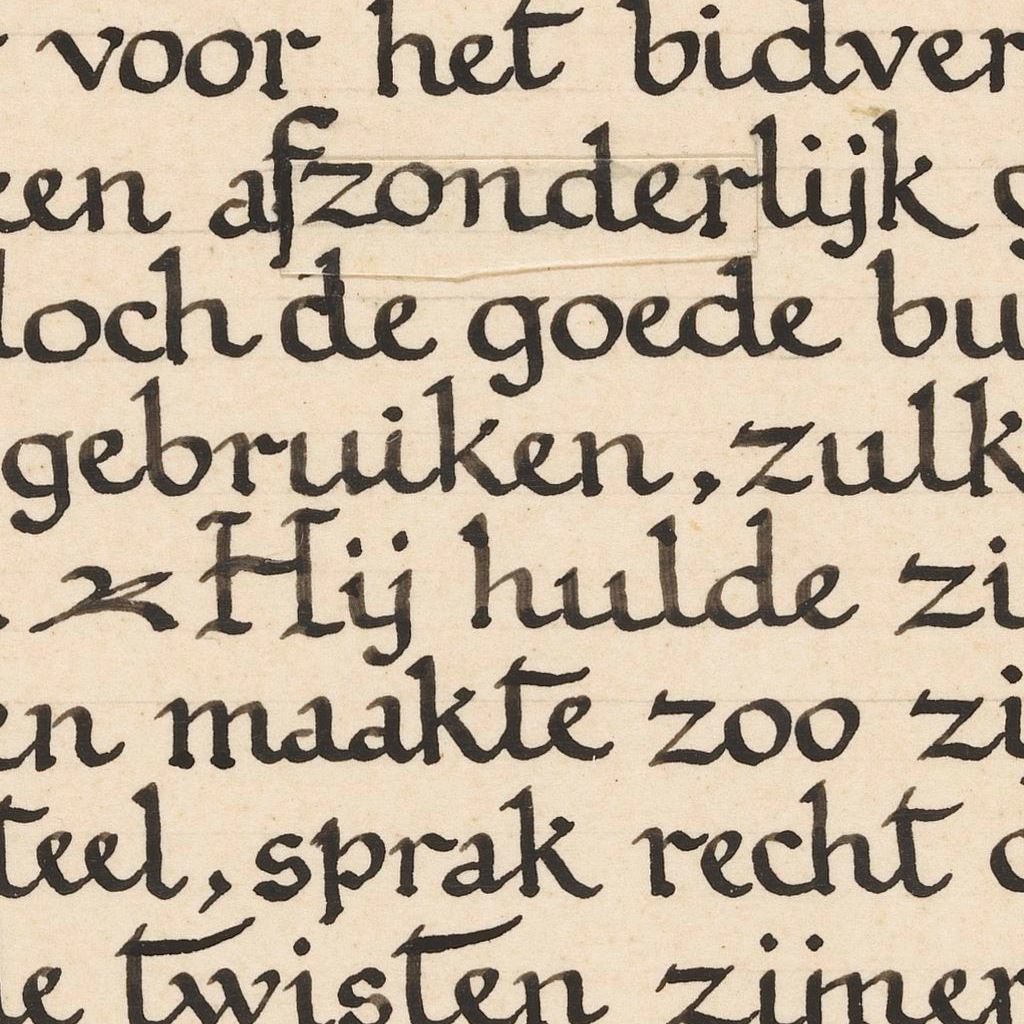 voor het bidver
een afzonderlijk
doch de goede bu
gebruiken, zulk
Hij hulde zi
en maakte zoo zij
teel, sprak recht
twisten zijner